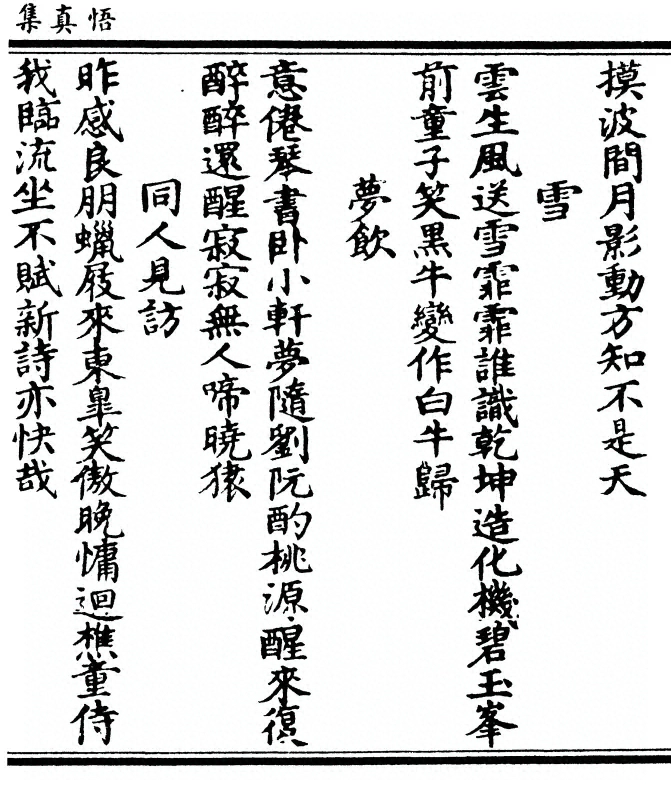 悟真集
摸波間月影動方知不是天
雪
雲生風送雪霏霏誰識乾坤造化機碧玉峯
前童子笑黑牛變作白牛歸
夢飲
意倦琴書卧小軒夢隨劉阮酌桃源醒來復
醉醉還醒寂寂無人啼曉猿
同人見訪
昨感良朋蠟屐來東臯笑傲晚慵迴樵童侍
我臨流坐不賦新詩亦快哉